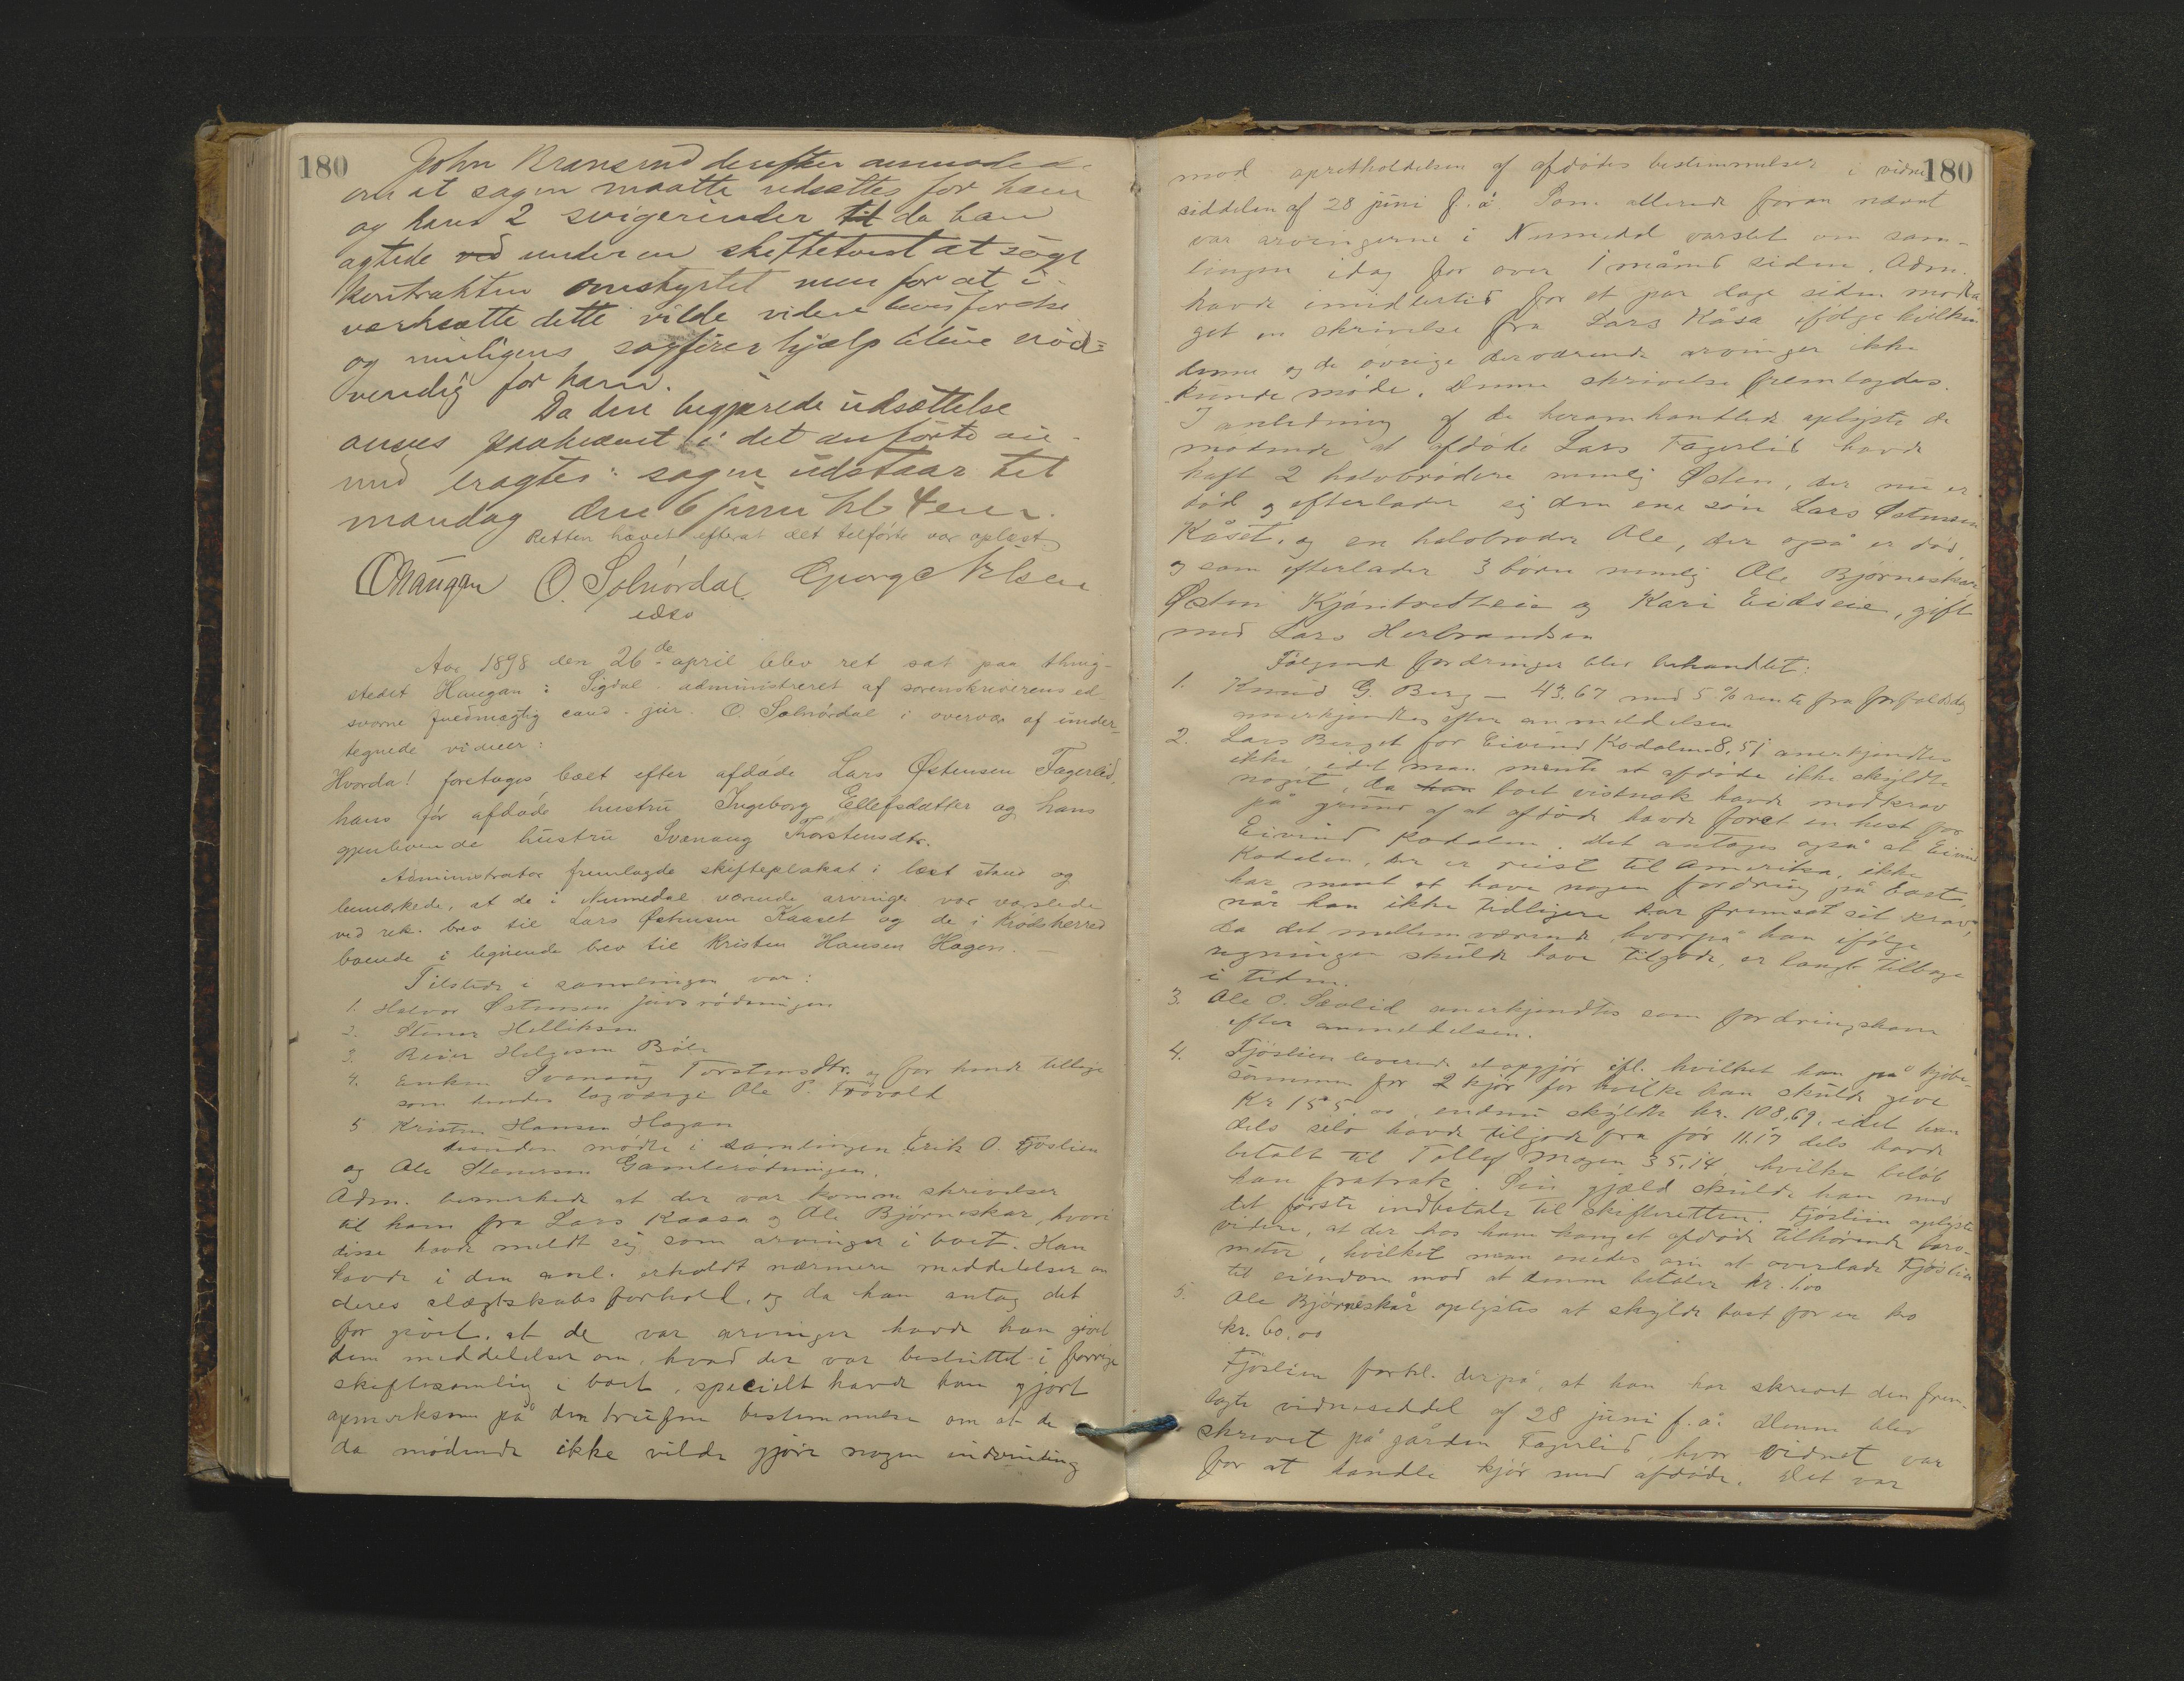 180
John Kransrud derefter anmodede
om at sagen maatte udsættes for ham
og hans 2 svigerinder til da han
agtede ved under en skiftetvist at søge
kontrakten omstyrtet men for at i-
værksætte dette vilde videre bevisførelse
og muligens sagførerhjælp blive nød-
vendig for ham.
Da den begjærede udsættelse
ansees paakrævet i det anførte øie-
med eragtes: sagen udstaar til
mandag den 6 juni kl 4 em.
Retten hævet efterat det tilførte var oplæst
O. Solnørdal George Nilsen
edsv
Aar 1898 den 26de april blev ret sat paa thing-
stedet Haugan i Sigdal administreret af sorenskriverens ed-
svorne fuldmægtig cand. jur. O. Solnørdal i overvær af under-
tegnede vidner:
Hvorda! foretages boet efter afdøde Lars Østensen Fagerlid,
hans før afdøde hustru Ingeborg Ellefsdatter og hans
gjenlevende hustru Svanaug Thorstensdtr.
Administrator fremlagde skifteplakat i læst stand og
bemærkede, at de i Numedal værende arvinger var varslede
ved rek. brev til Lars Østensen Kaaset og de i Krødsherred
boende i lignende brev til Kristen Hansen Hagen. —
Tilstede i samlingen var:
1. Halvor Østensen
2. Stener Helliksen
3. Reier Helgesen Böle
4. Enken Svanaug Torstensdtr. og for hende tillige
som hendes lagværge Ole P. Frøvold
5 Kristen Hansen Hagan
desuden mødte i samlingen Erik O. Fjøslien
og Ole Stenersen Gamlerødningen.
Adm. bemerkede at der var komne skrivelser
til ham fra Lars Kaasa og Ole Bjørneskar, hvori
disse havde meldt sig som arvinger i boet. Han
havde i den anl. erholdt nærmere meddelelser om
deres slægtskabsforhold, og da han antog det
for givet, at de var arvinger havde han givet
dem meddelelser om, hvad der var besluttet i forrige
skiftesamling i boet, specielt havde han gjort
opmerksom på den trufne bestemmelse om at de
da mødende ikke vilde gjøre nogen indvending
180
mod opretholdelsen af afdødes bestemmelser i vidne-
siddelen af 28 juni f. å. Som allerede foran nævnt
var arvingerne i Numedal varslet om sam-
lingen idag for over 1 måned siden. Adm.
havde imidlertid for et par dage siden modta-
get en skrivelse fra Lars Kåsa ifølge hvilken
denne og de øvrige derværende arvinger ikke
kunde møde. Denne skrivelse fremlagdes.
I anledning af de heromhandlede oplyste de
mødende at afdøde Lars Fagerlid havde
haft 2 halvbrødere nemlig Østen, der nu er
død og efterlader sig den ene søn Lars Østensen
Kåset, og en halvbroder Ole, der også er død,
og som efterlader 3 børn nemlig Ole Bjørneskår
Østen og Kari Eidseie, gift
med Lars Herbrandsen
Følgende fordringer blev behandlet:
1. Knud G. Berg — 43.67 med 5 % rente fra forfaldsdag
anerkjendtes efter anmeldelsen
2. Lars Berget for Eivind Kodalen 8,51 anerkjendtes
ikke, idet man mente at afdøde ikke skyldte
noget, da han boet vistnok havde modkrav
på grund af at afdøde havde foret en hest for
Eivind Kodalen. Det antoges også at Eivind
Kodalen, der er reist til Amerika, ikke
har ment at have nogen fordring på boet,
når han ikke tidligere har fremsat sit krav,
da det mellemværende, hvorpå han ifølge
regningen skulde have tilgode, er langt tilbage
i tiden.
3. Ole O. Sævlid anerkjendtes som fordringshaver
efter anmeldelsen.
4. Fjøslien leverede et opgjør ifl. hvilket han på kjøbe-
summen for 2 kjør for hvilke han skulde give
Kr 155,00, endnu skyldte kr. 108,69, idet han
dels selv havde tilgode fra før 11.17 dels havde
betalt til Tollef Mogen 35,14, hvilke beløb
han fratrak. Sin gjæld skulde han med
det første indbetale til skifteretten. Fjøslien oplyste
videre, at der hos ham hang et afdøde tilhørende baro-
meter, hvilket man enedes om at overlade Fjøslien
til eiendom mod at denne betaler kr. 1.00
5. Ole Bjørneskår oplystes at skylde boet for en ko
kr. 60,00
Fjøslien forkl. derpå, at han har skrevet den frem-
lagte vidneseddel af 28 juni f. å. Denne blev
skrevet på gården Fagerlid, hvor vidnet var
for at handle kjør med afdøde. Det var